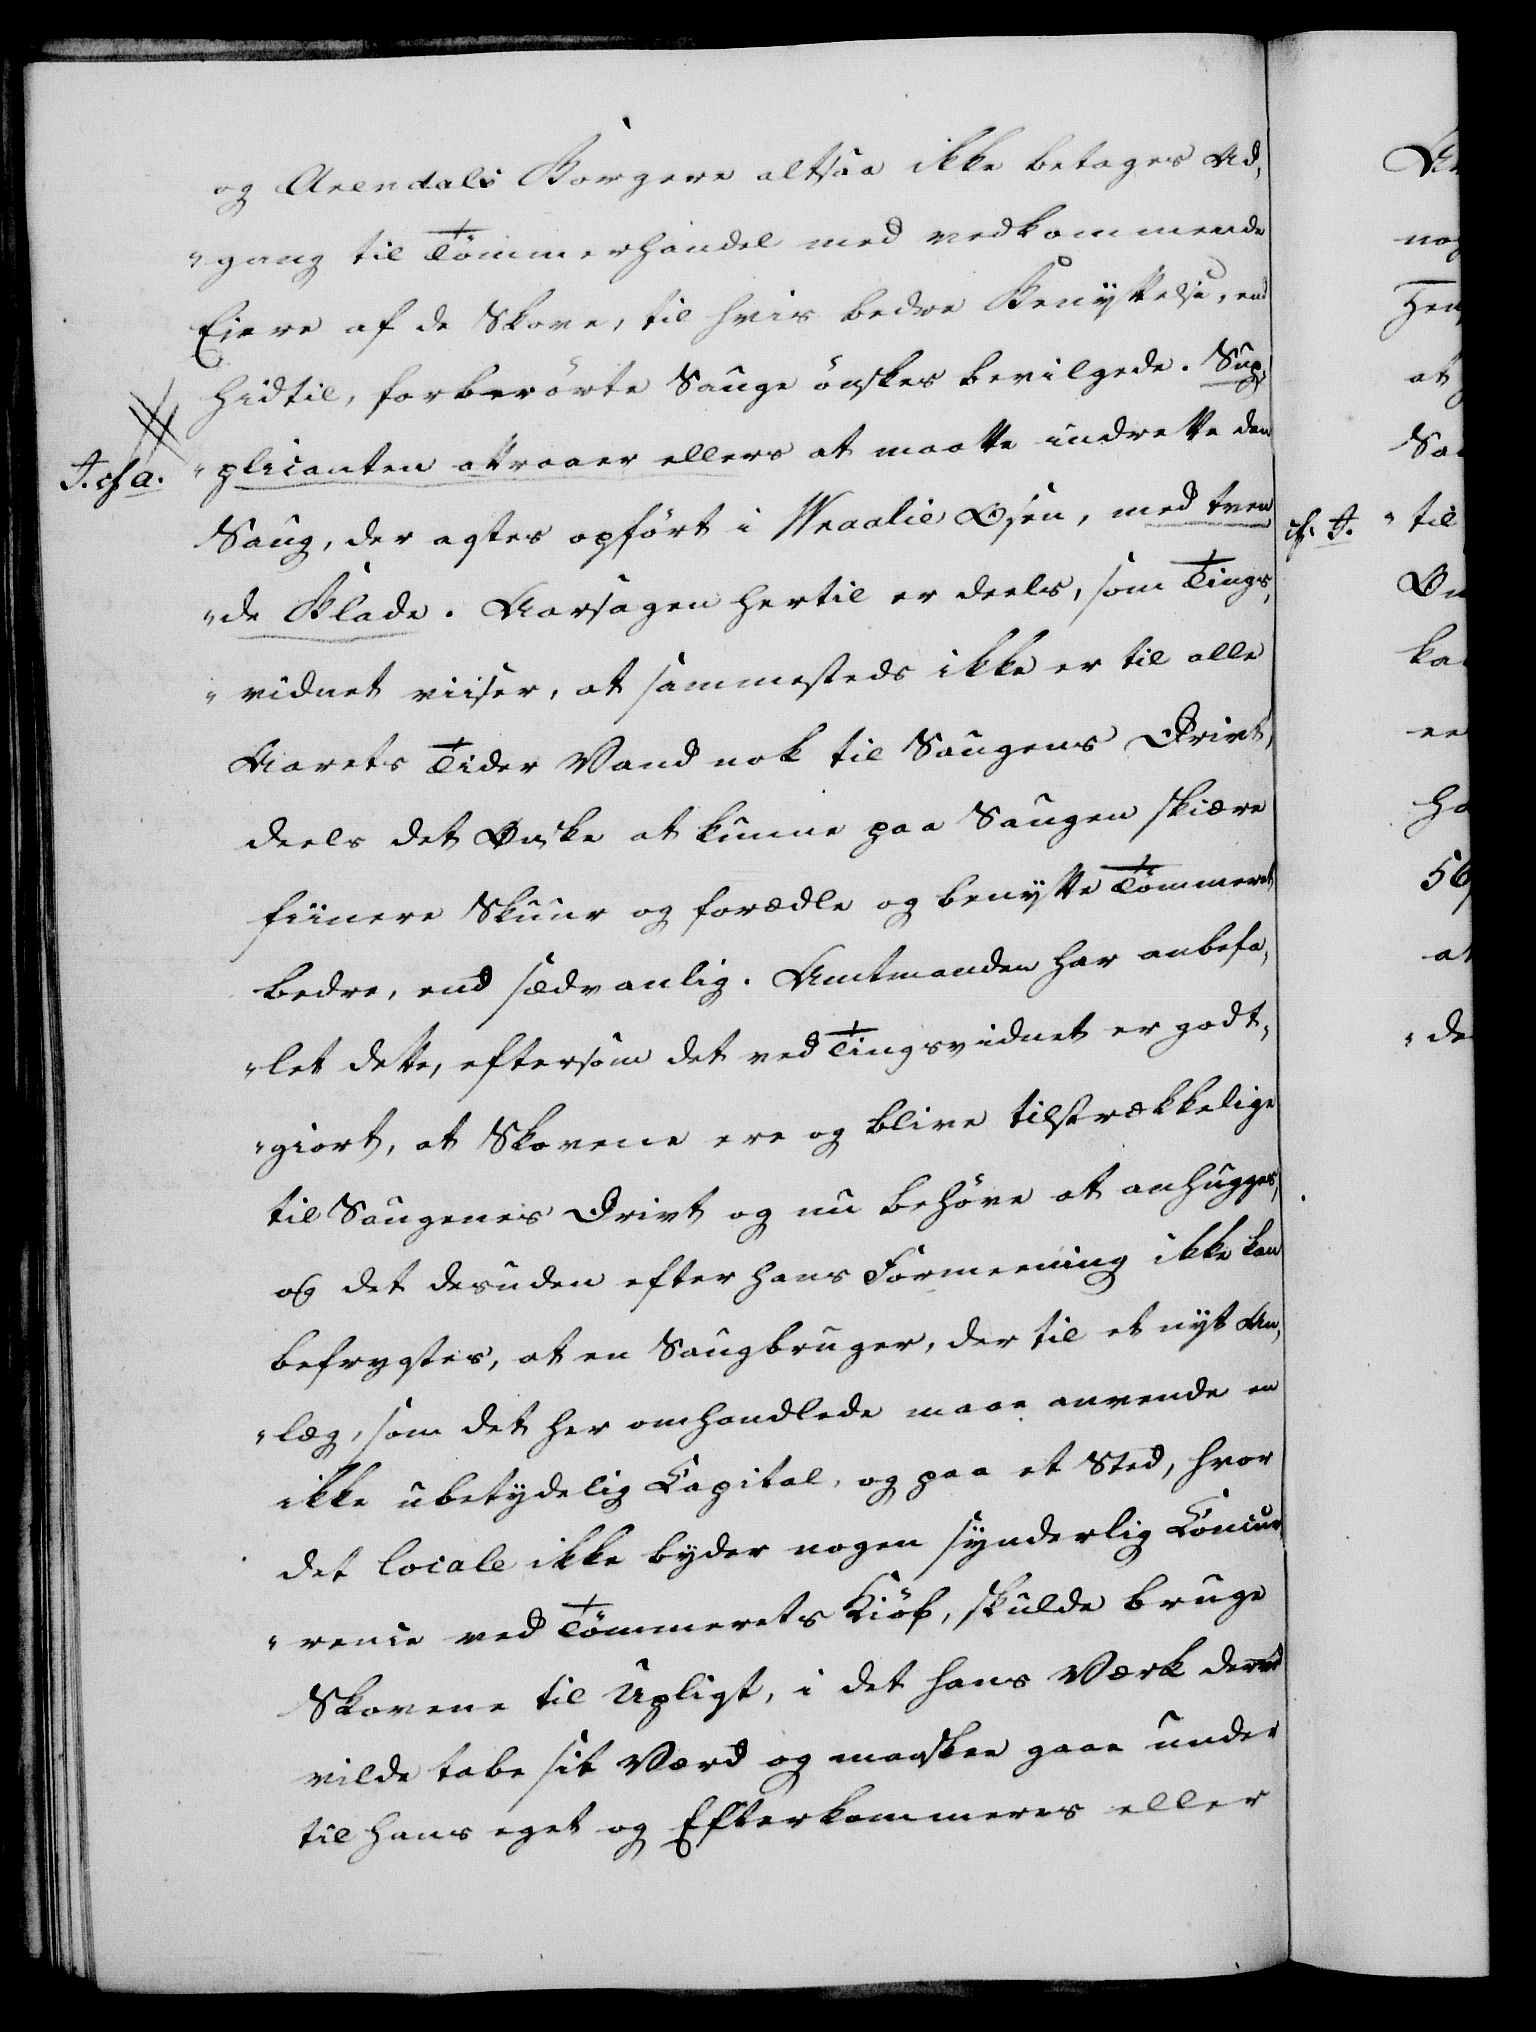 og Arendals Borgere altsaa ikke betages Ad,
"gang til Tömmerhandel med vedkommende
Eiere af de Skove, til hvis bedre Benyttelse, end
hidtil, forberörte Sauge önskes bevilgede. Sup,
"plicanten attraaer ellers at maatte indrette den
J. cf a.
Saug, der agtes opfört i Vraalie Osen, med tven
"de Blade. Aarsagen hertil er deels, som Tings,
"vidnet viiser, at sammesteds ikke er til alle
Aarets Tider Vand nok til Saugens Drivt,
deels det Ønske at kunne paa Saugen skiære
fiinere Skuur og forædle og benytte Tömmeret
bedre, end sædvanlig. Amtmanden har anbefa,
"let dette, eftersom det ved Tingsvidnet er godt,
"giort, at Skovene ere og blive tilstrækkelige
til Saugenes Drivt og nu behöve at anhugges,
og det desuden efter hans Formeening ikke kan
befrygtes, at en Saugbruger, der til et nyt An,
"læg, som det her omhandlede maae anvende en
ikke ubetydelig Capital, og paa et Sted, hvor
det locale ikke byder nogen synderlig Concur
"rence ved Tömmerets Kiöb, skulde bruge
Skovene til Upligt, i det hans Værk derved
vilde tabe sit Værd og maaskee gaae under
til hans eget og Efterkommeres eller
cf. J.
"til
at
56
"de